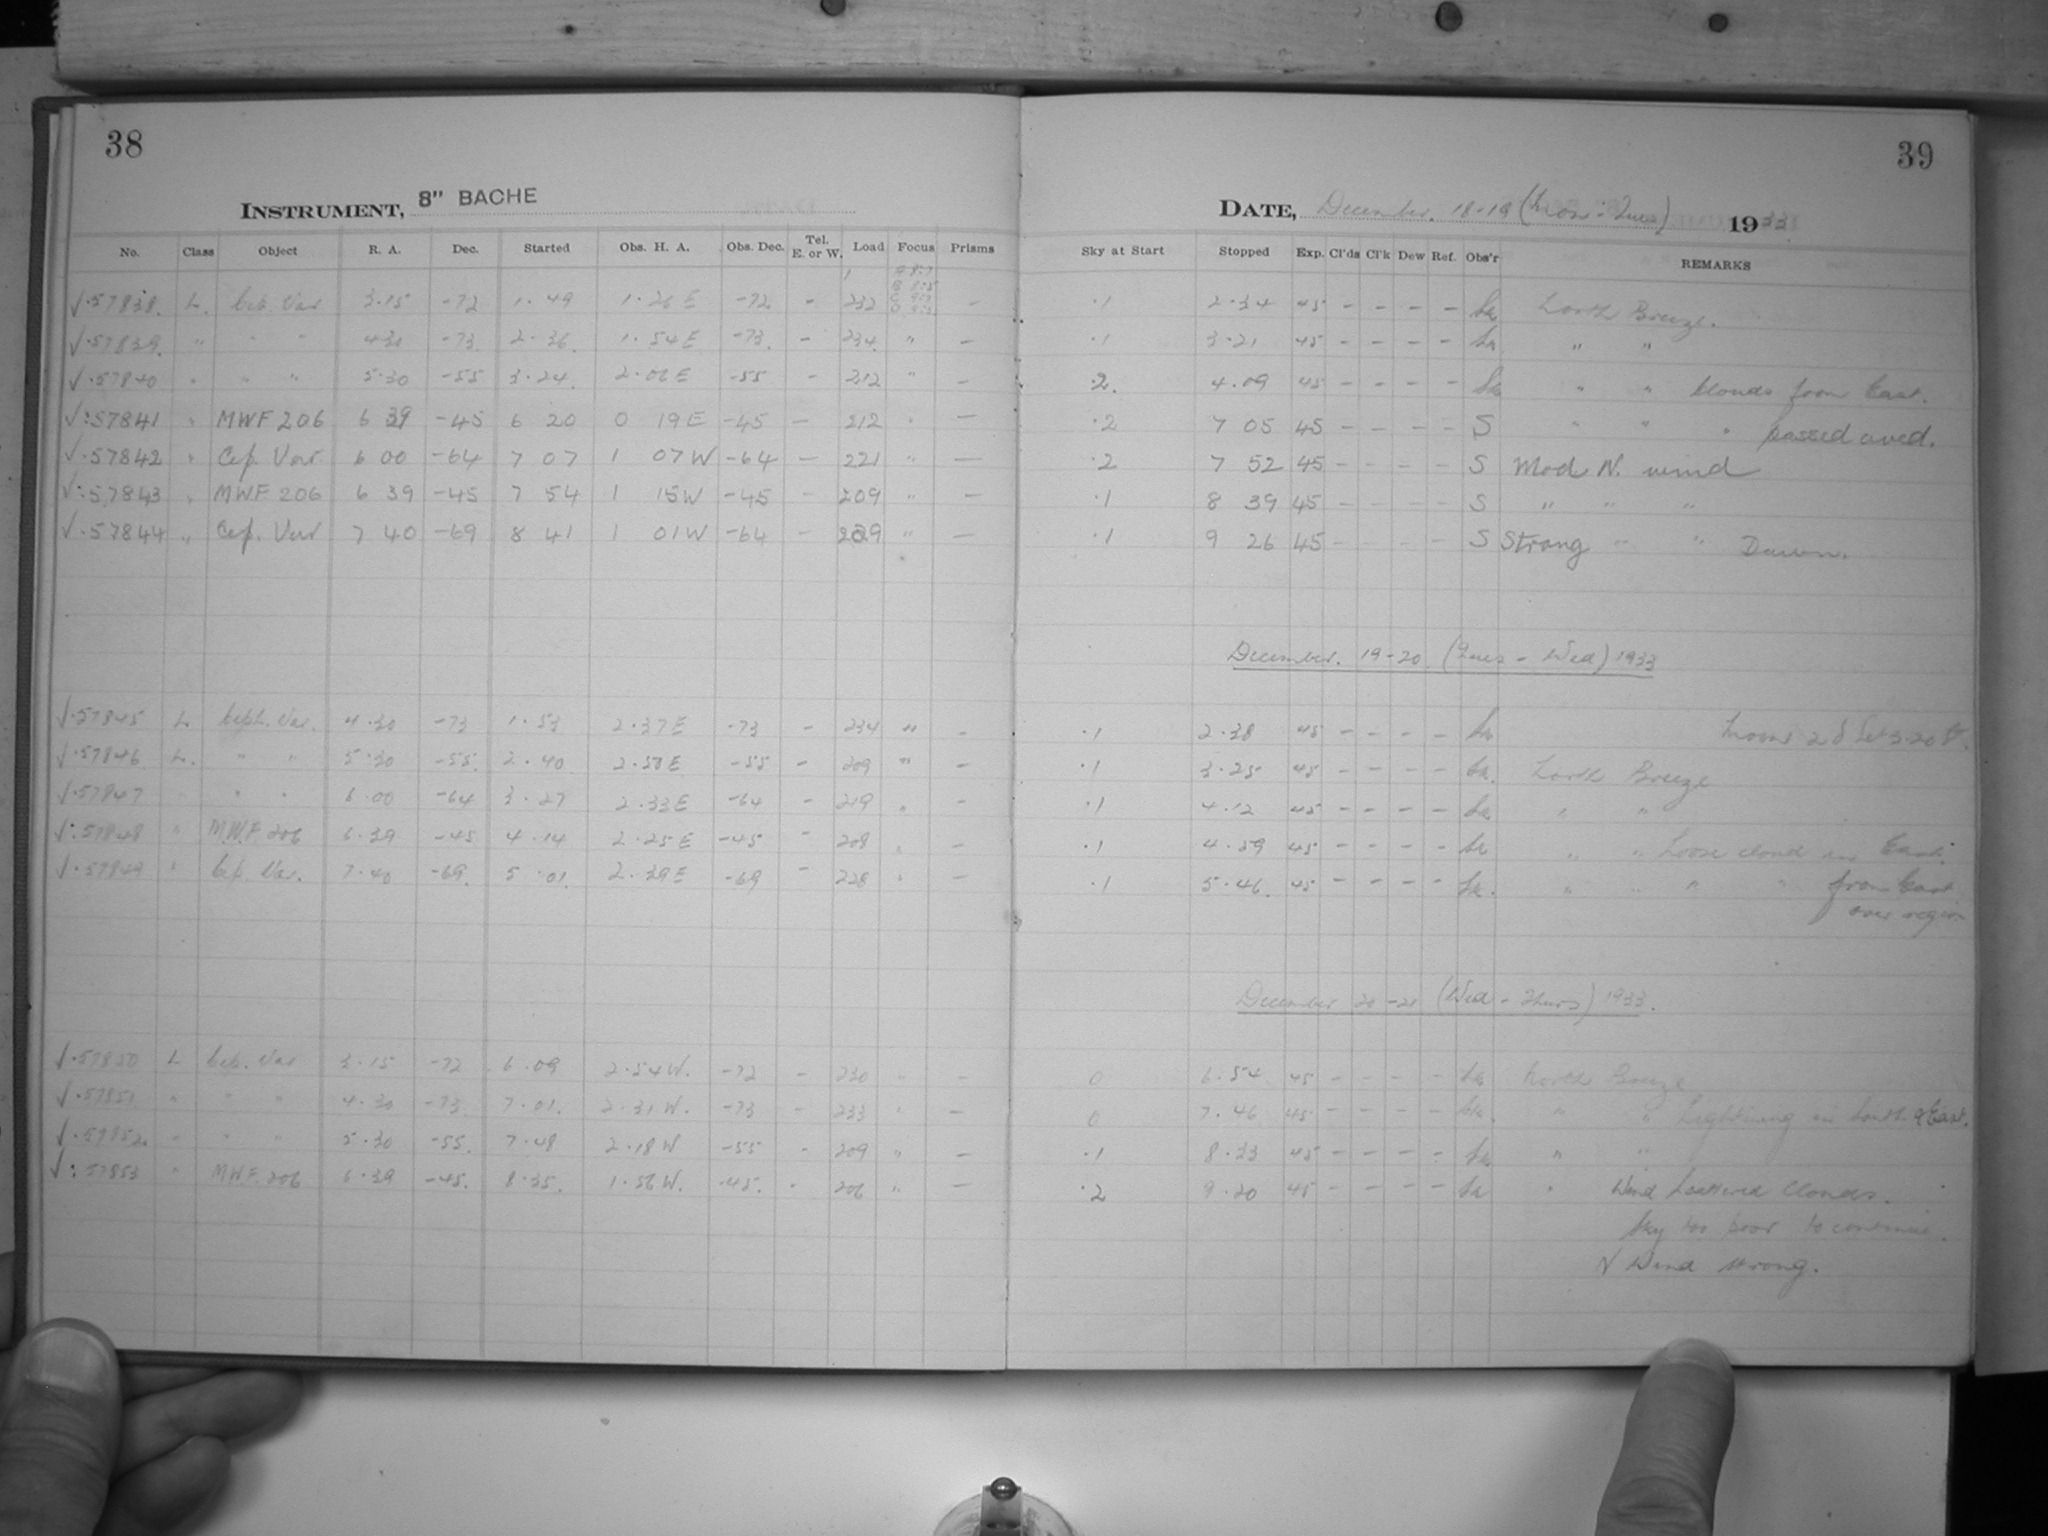 38
INSTRUMENT, 8" BACHE
No. Class Object R. A. Dec. Started Obs. H. A. Obs. Dec. Tel. E. or W. Load Focus Prisms
√·57838. L. Cep. Var 3·15 -72 1·49 1·26 E -72 - 232 -
√·57839. " " " 4 30 -73 2·36. 1·54 E -73. - 234 " -
√·57840 " " " 5·30 -55 3·24. 2·06 E -55 - 212 " -
√:57841 " MWF 206 6 39 -45 6 20 0 19 E -45 - 212 " -
√·57842 " Cep. Var 6 00 -64 7 07 1 07 W -64 - 221 " -
√:57843 " MWF 206 6 39 -45 7 54 1 15 W -45 - 209 " -
√·57844 " Cep. Var 7 40 -69 8 41 1 01 W -64 - 229 " -
√·57845 L Ceph. Var. 4·30 -73 1·53 2·37 E -73 - 234 " -
√·57846 L. " " 5·30 -55. 2·40 2·50 E -55 - 209 " -
√·57847 " " " 6·00 -64 3·27 2·33 E -64 - 219 " -
√:57848 " M.W.F. 206 6·39 -45 4·14 2·25 E -45 - 208 " -
√·57849 " Cep. Var. 7·40 -69. 5·01. 2·39 E -69 - 228 " -
√·57850 L Cep. Var 3·15 -72 6·09 2·54 W. -72 - 230 " -
√·57851 " " " 4·30 -73 7·01. 2·31 W. -73 - 233 " -
√·57852 " " " 5·30 -55. 7·48 2·18 W -55 - 209 " -
√:57853 " MWF 206 6·39 -45. 8·35. 1·56 W. -45. - 206 " -
39
DATE, December. 18-19 (Mon - Tues) 1933
Sky at Start Stopped Exp. Cl'ds Cl'k Dew Ref. Obs'r REMARKS
·1 2·34 45 - - - - North Breeze.
·1 3·21 45 - - - - " "
·2. 4·09 45 - - - - " " Clouds from East.
·2 7 05 45 - - - - S " " " passed over.
·2 7 52 45 - - - - S Mod N. wind
·1 8 39 45 - - - - S " " "
·1 9 26 45 - - - - S Strong " " Dawn.
December. 19-20. (Tues - Wed) 1933
·1 2·38 45 - - - - Moon 2 d Set 3.20 ST.
·1 3·25 45 - - - - North Breeze
·1 4·12 45 - - - - " "
·1 4·59 45 - - - - " " Loose cloud in East.
·1 5·46. 45 - - - - " " " " from East
over region
December 20-21 (Wed - Thurs) 1933.
0 6·54 45 - - - - North Breeze
0 7·46 45 - - - - " " Lightning in South & East.
·1 8·33 45 - - - - " "
·2 9·20 45 - - - - " Wind Scattered Clouds.
Sky too poor to continue.
N Wind strong.